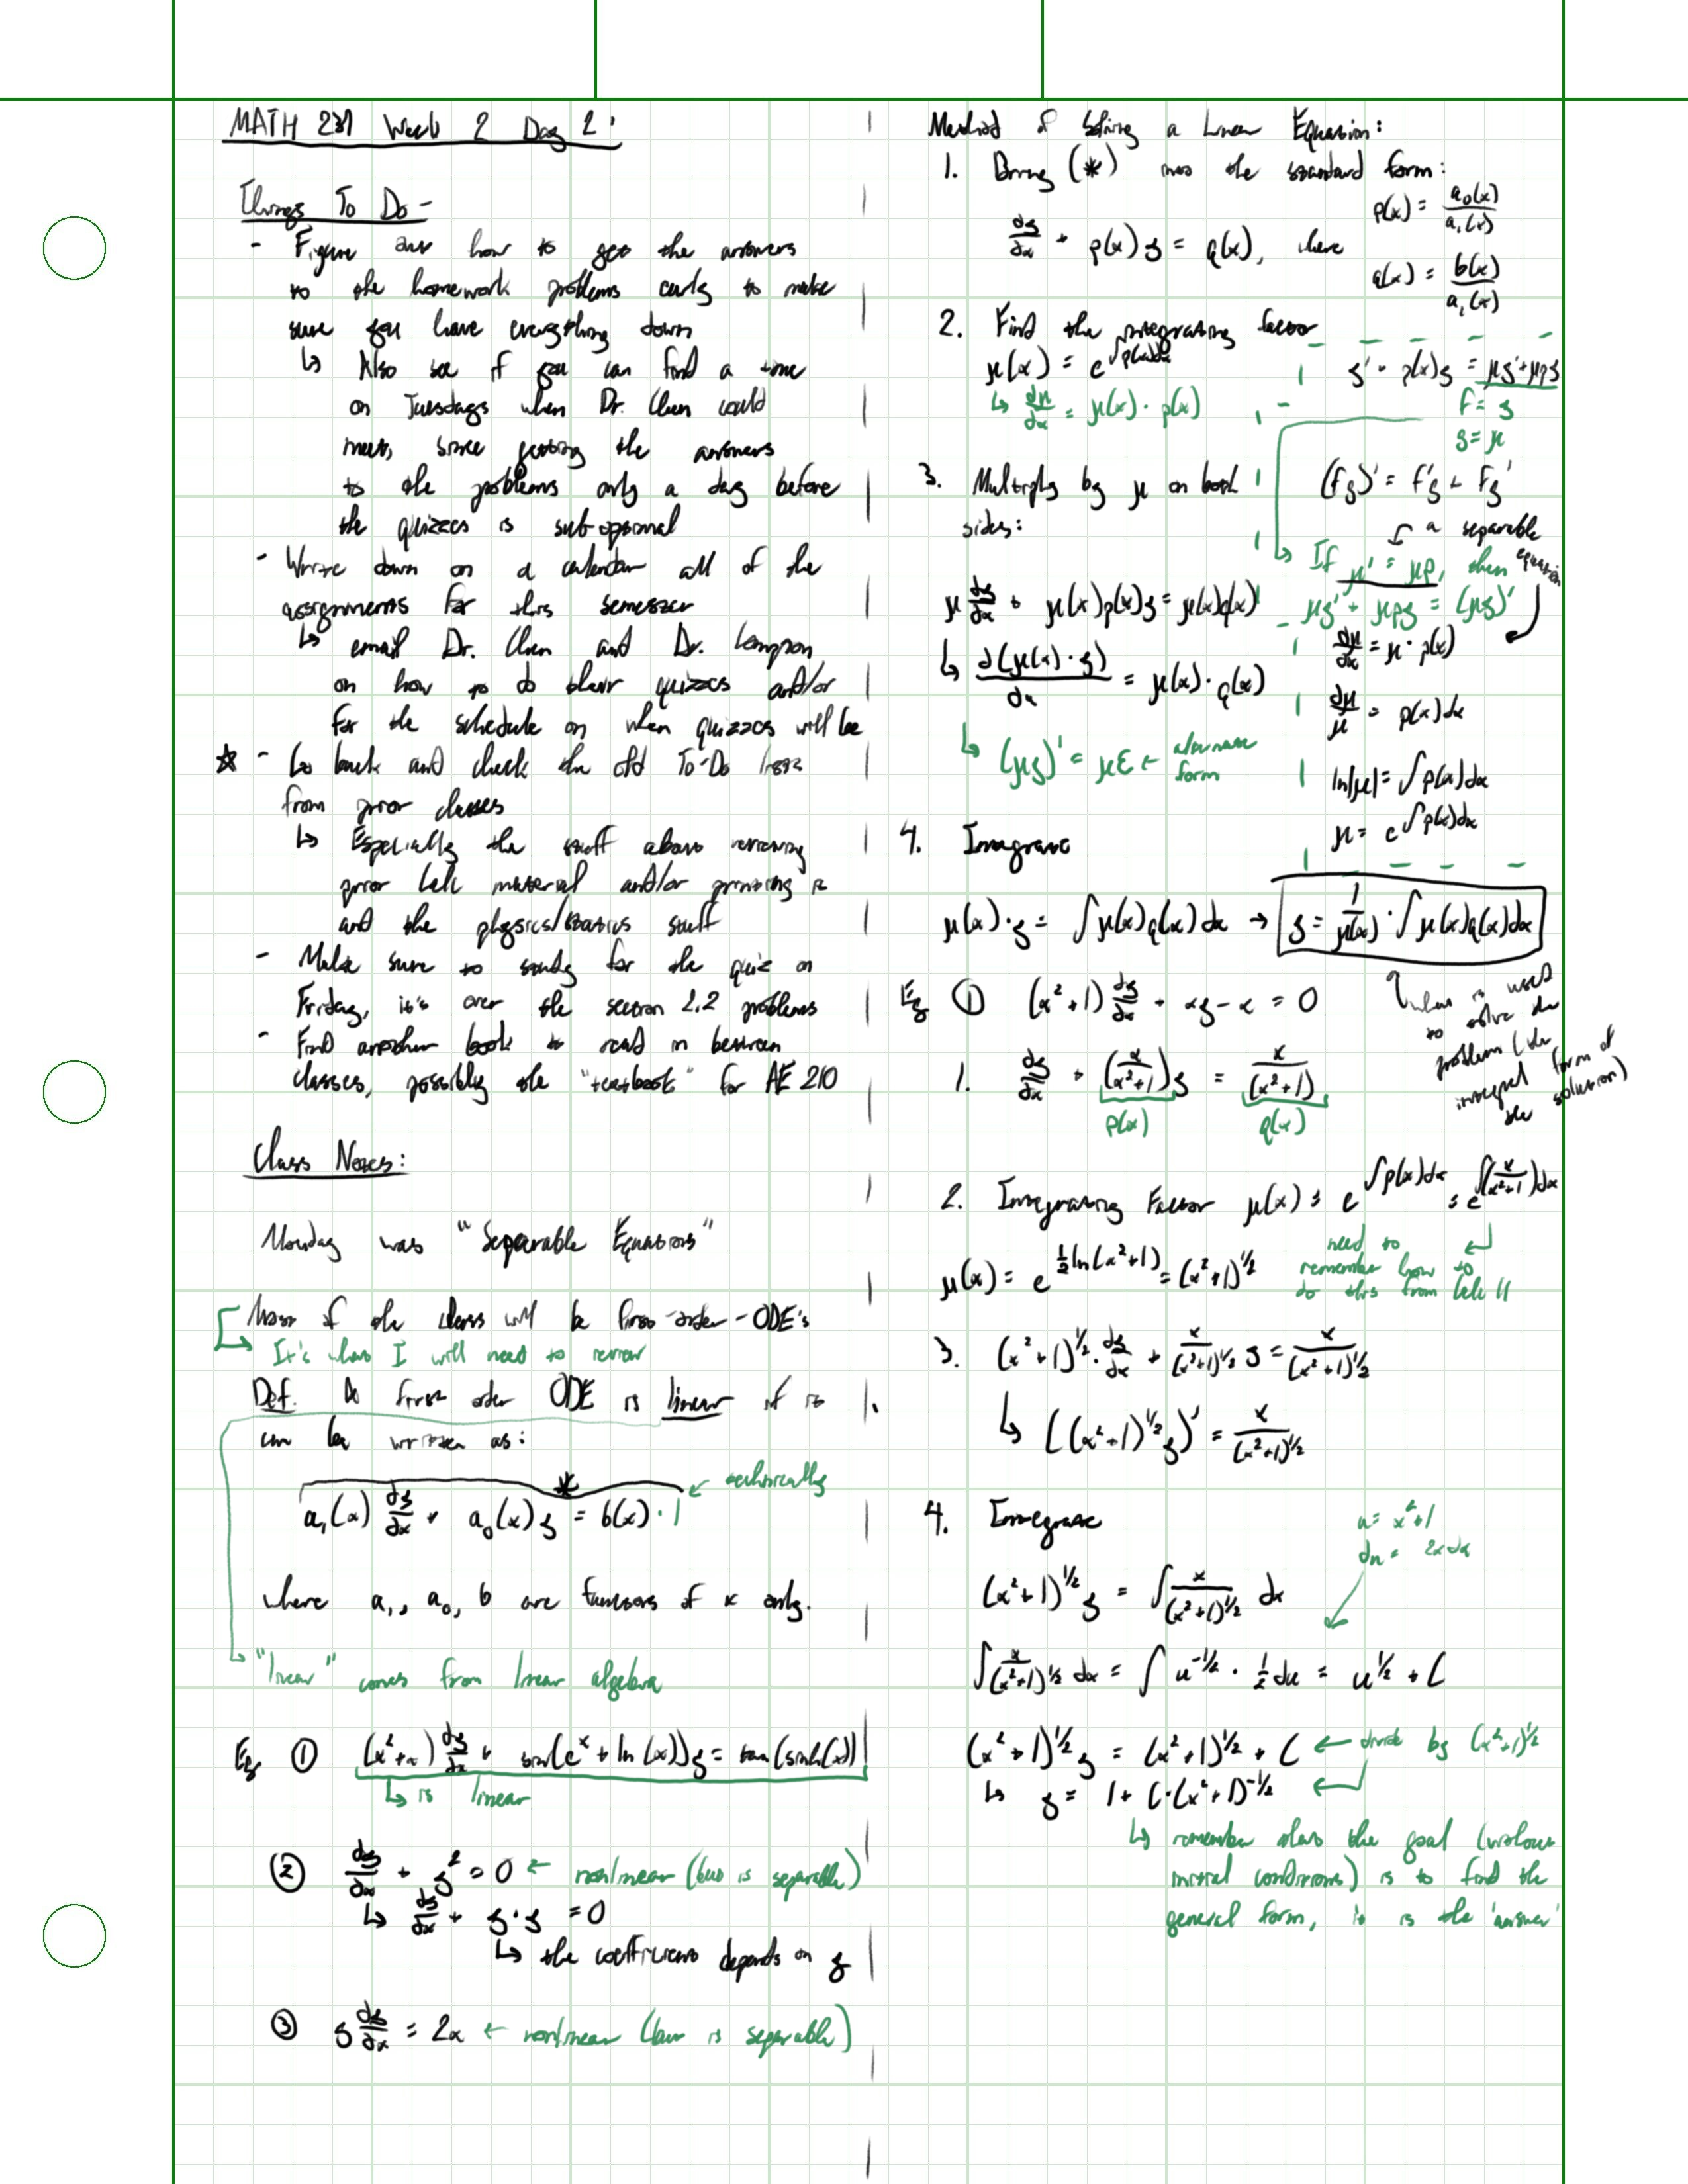 MATH 231 Week 2 Day 2:
Things To Do -
- Figure out how to get the answers
to the homework problems early to make
sure you have everything down
↳ Also see if you can find a time
on Tuesdays when Dr. Chen could
meet, since getting the answers
to the problems only a day before
the quizzes is sub-optimal
- Write down on a calendar all of the
assignments for this semester
↳ email Dr. Chen and Dr.
on how to do their quizzes and/or
for the schedule on when quizzes will be
☆ - Go back and check the old To-Do lists
from prior classes
↳ Especially the stuff about reviewing
prior Calc material and/or printing it
and the physics/statics stuff
- Make sure to study for the quiz on
Friday, it's over the section 2.2 problems
- Find another book to read in between
classes, possibly the "textbook" for AE 210
Class Notes:
Monday was "Separable Equations"
Most of the class will be first-order-ODE's
↳ It's what I will need to review
Def. A first order ODE is linear if it
can be written as:
*
a₁(x) dy/dx + a₀(x)y = b(x)·1 ← technically
where a₁, a₀, b are functions of x only.
↳ "linear" comes from linear algebra
Eg ① (x²+x) dy/dx + sin(eˣ + ln(x))y = tan(sinh(x))
↳ is linear
② dy/dx + y² = 0 ← nonlinear (but is separable)
↳ dy/dx + y·y = 0
↳ the coefficient depends on y
③ y dy/dx = 2x ← nonlinear (but is separable)
Method of Solving a Linear Equation:
1. Bring (*) into the standard form:
dy/dx + p(x)y = q(x), where
p(x) = a₀(x)/a₁(x)
q(x) = b(x)/a₁(x)
2. Find the integrating factor
μ(x) = e^∫p(x)dx
↳ dμ/dx = μ(x)·p(x)
y' + p(x)y = μy'+μpy
f = y
g = μ
(fg)' = f'g + fg'
a separable equation
↳ If μ' = μp, then
μy' + μpy = (μy)'
dμ/dx = μ·p(x)
dμ/μ = p(x)dx
ln|μ| = ∫p(x)dx
μ = e^∫p(x)dx
3. Multiply by μ on both
sides:
μ dy/dx + μ(x)p(x)y = μ(x)q(x)
↳ d(μ(x)·y)/dx = μ(x)·q(x)
↳ (μy)' = μq ← alternate
form
4. Integrate
μ(x)·y = ∫μ(x)q(x)dx → y = 1/μ(x) · ∫μ(x)q(x)dx
what is used
to solve the
problem (the
integral form of
the solution)
Eg ① (x²+1) dy/dx + xy - x = 0
1. dy/dx + (x/(x²+1))y = x/(x²+1)
p(x) q(x)
2. Integrating Factor μ(x) = e^∫p(x)dx = e^∫(x/(x²+1))dx
μ(x) = e^½ln(x²+1) = (x²+1)^½
need to
remember how to
do this from Calc II
3. (x²+1)^½ · dy/dx + x/(x²+1)^½ y = x/(x²+1)^½
↳ ((x²+1)^½ y)' = x/(x²+1)^½
4. Integrate
u = x²+1
du = 2xdx
(x²+1)^½ y = ∫ x/(x²+1)^½ dx
∫ x/(x²+1)^½ dx = ∫ u^-½ · ½ du = u^½ + C
(x²+1)^½ y = (x²+1)^½ + C ← divide by (x²+1)^½
↳ y = 1 + C·(x²+1)^-½
↳ remember that the goal (without
initial conditions) is to find the
general form, it is the 'answer'